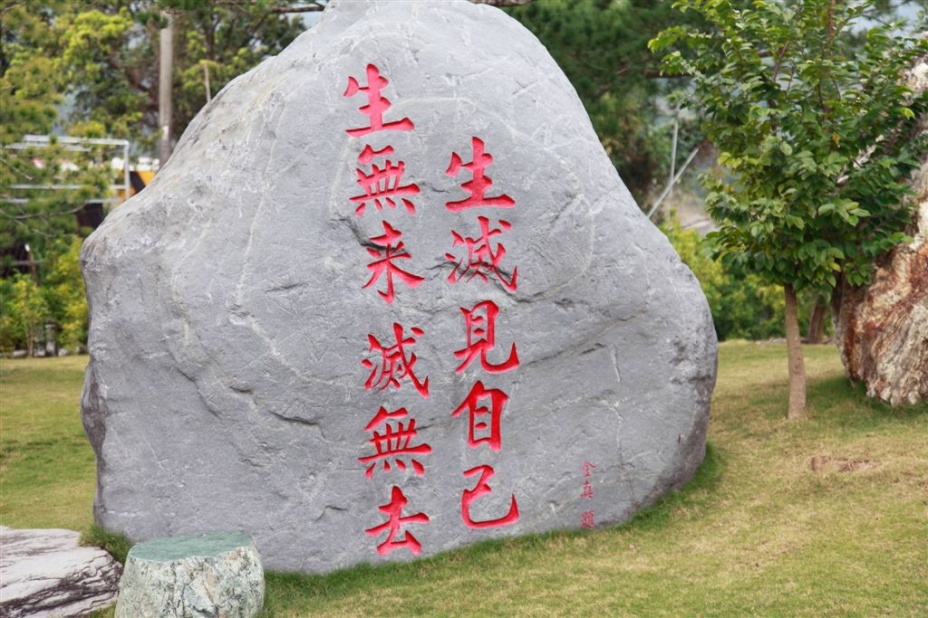 生滅見自己
生無来 滅無去